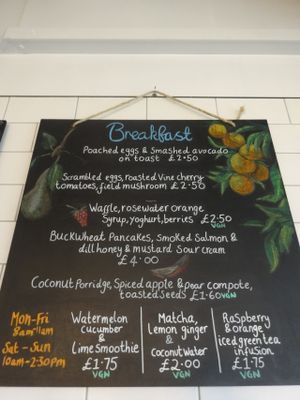 Breakfast
Poached eggs & Smashed avocado
on toast £2.50
Scrambled eggs, roasted Vine cherry
tomatoes, field mushroom £2.50
Waffle, rosewater orange
Syrup, yoghurt, berries £2.50
VGN
Buckwheat Pancakes, Smoked Salmon &
dill honey & mustard Sour cream
£4.00
Coconut Porridge, Spiced apple & pear compote,
toasted Seeds £1.60 VGN
Mon-Fri
8am-11am
Sat-Sun
10am-2:30pm
Watermelon
cucumber
&
Lime Smoothie
£1.75
VGN
Matcha,
Lemon ginger
&
Coconut water
£2.00
VGN
Raspberry
& orange
iced green tea
infusion
£1.75
VGN